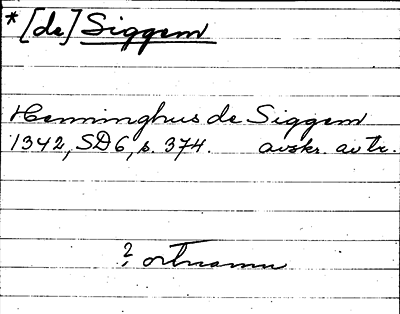 * [de] Siggem
Henninghus de Siggem
1342, SD 6, s. 374. avskr. av tr.
? ortnamn